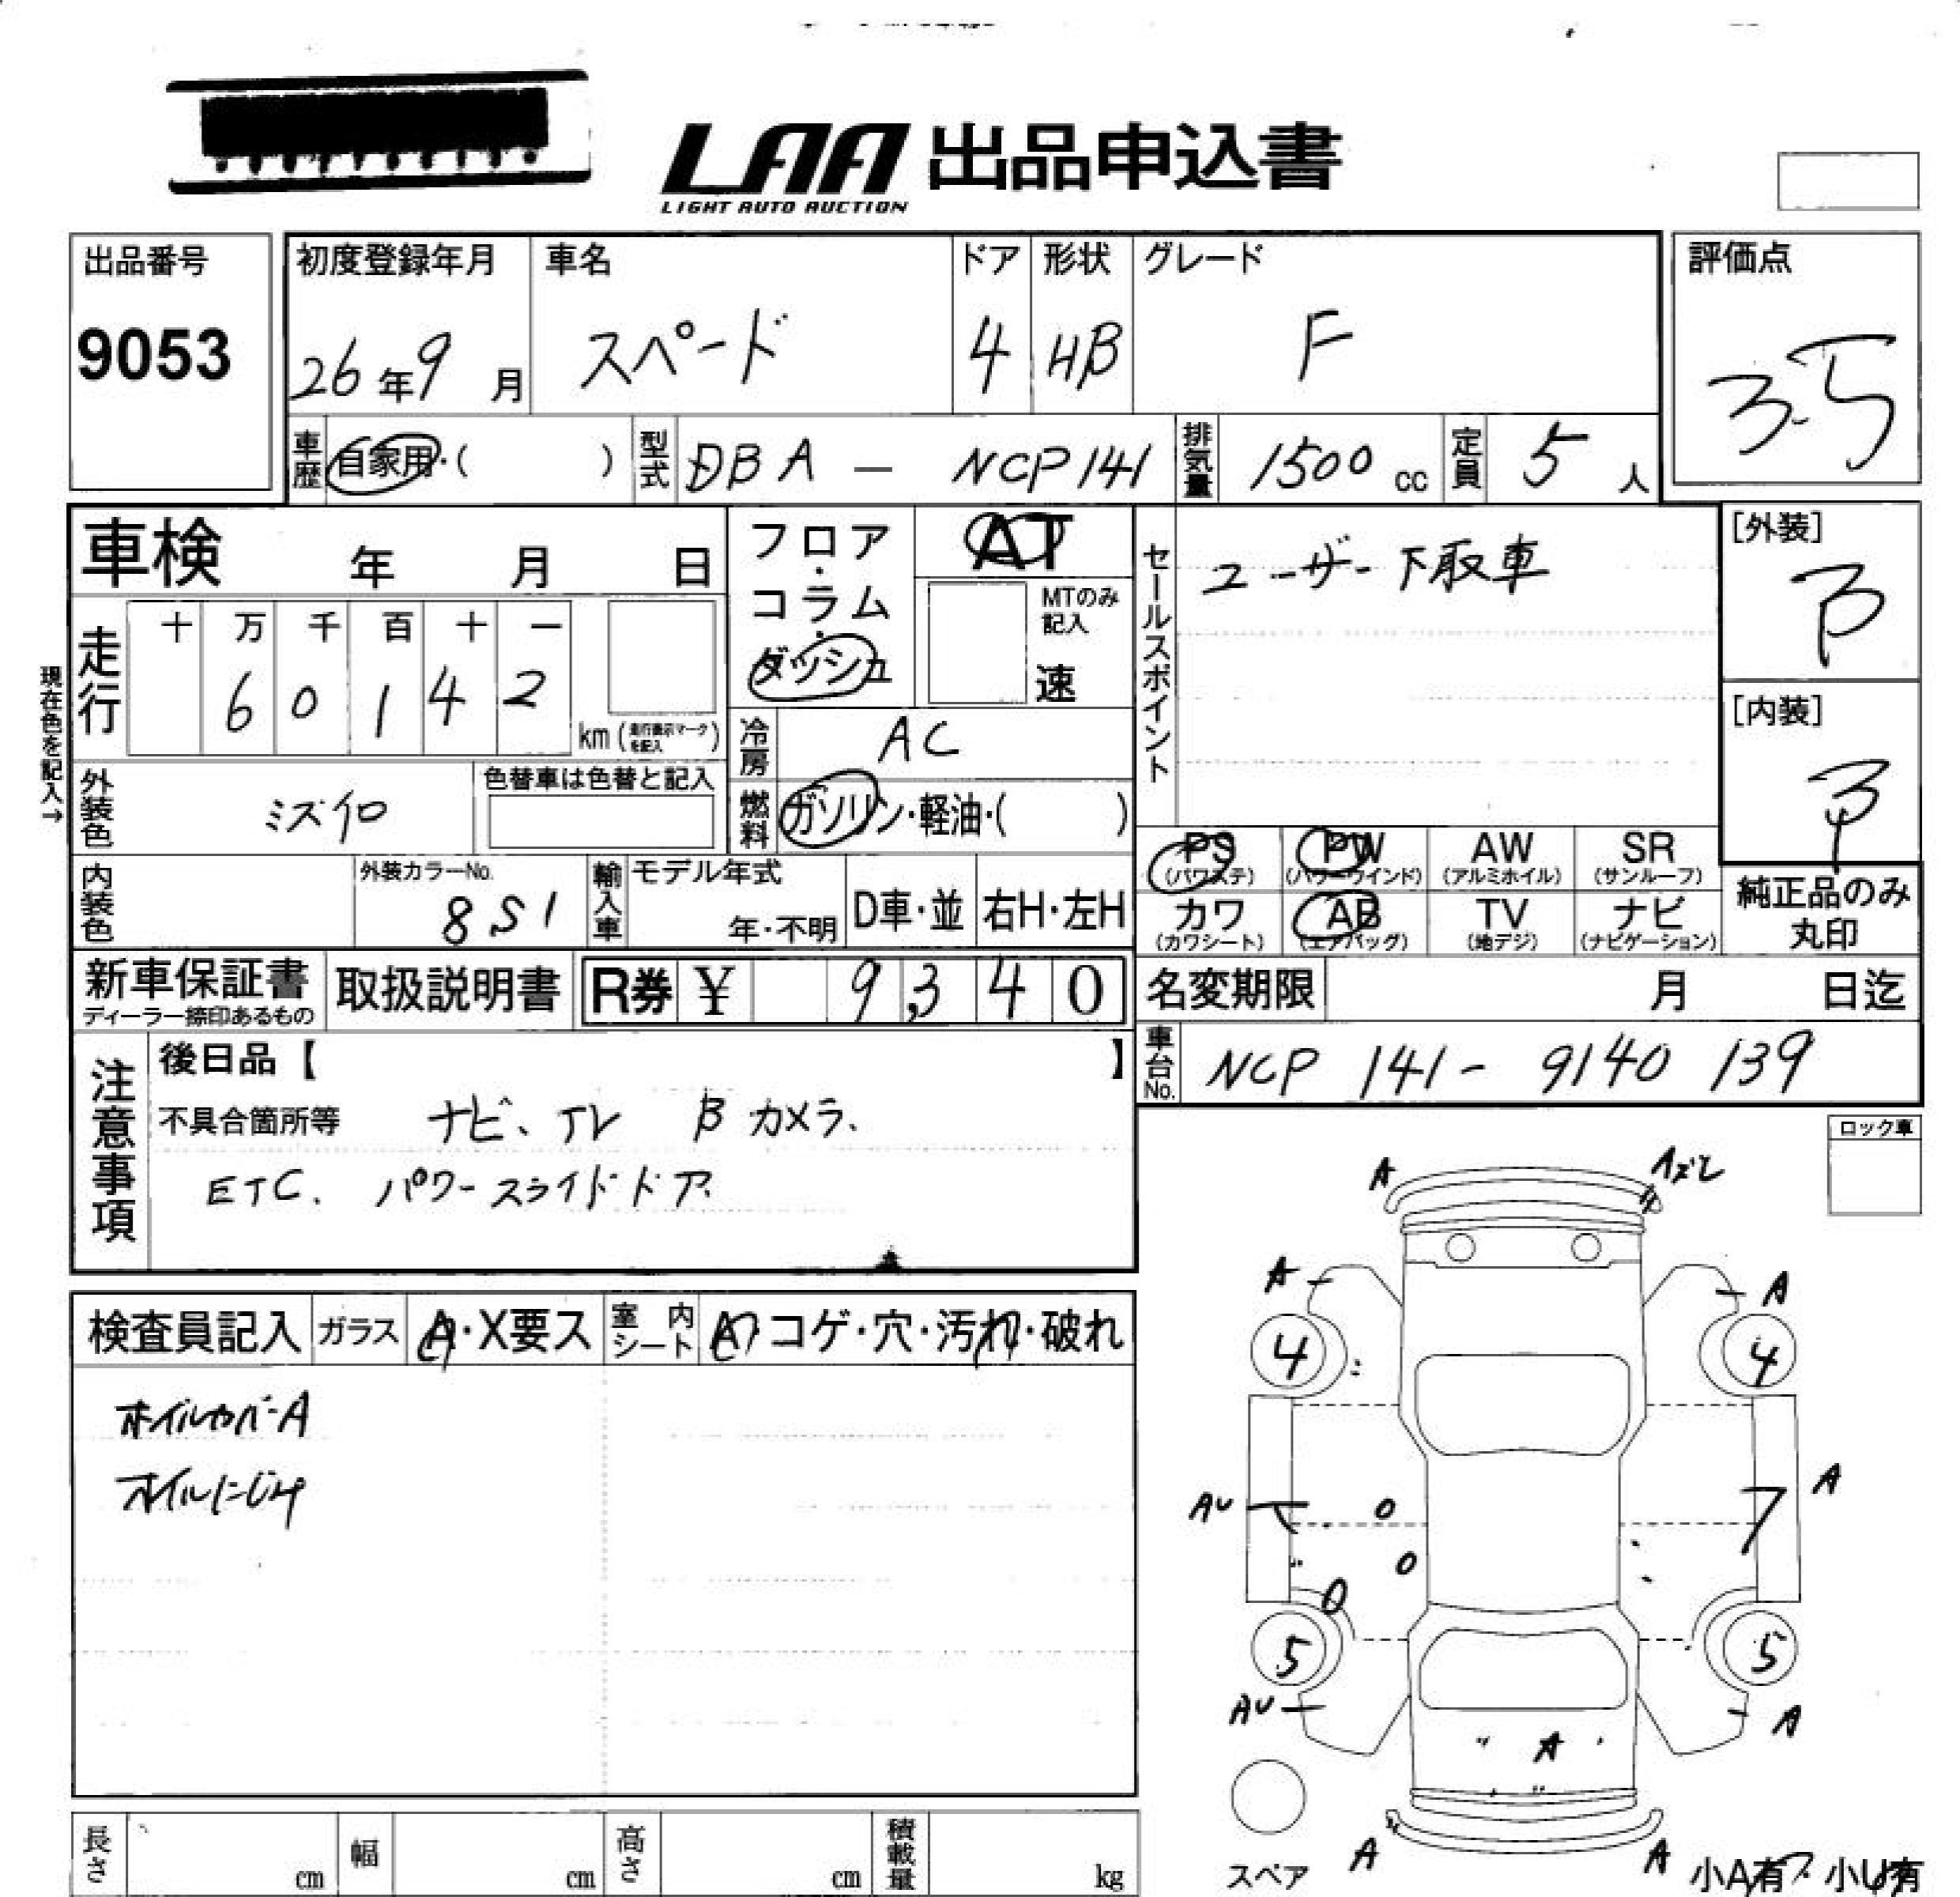 LAA 出品申込書
LIGHT AUTO AUCTION
出品番号
9053
初度登録年月
26年9月
車名
スペード
ドア
4
形状
HB
グレード
F
評価点
3.5
車歴 自家用・( )
型式 DBA - NCP141
排気量 1500 cc
定員 5 人
車検 年 月 日
フロア・コラム・ダッシュ
AT
MTのみ記入
速
セールスポイント
ユーザー下取車
[外装]
B
[内装]
現在色を記入→
走行
十 万 千 百 十 一
6 0 1 4 2
km (走行表示マークを記入)
冷房 AC
外装色 ミズイロ
色替車は色替と記入
燃料 ガソリン・軽油・( )
PS (パワステ)
PW (パワーウインド)
AW (アルミホイル)
SR (サンルーフ)
カワ (カワシート)
AB (エアバッグ)
TV (地デジ)
ナビ (ナビゲーション)
純正品のみ丸印
内装色
外装カラーNo.
8S1
輸入車
モデル年式
年・不明
D車・並
右H・左H
新車保証書
ディーラー捺印あるもの
取扱説明書
R券 ¥ 9,340
名変期限 月 日迄
車台No. NCP 141- 9140 139
注意事項
後日品【 】
不具合箇所等 ナビ、TV Bカメラ、
ETC. パワースライドドア.
ロック車
検査員記入
ガラス A・X要ス
室内シート A・コゲ・穴・汚れ・破れ
ホイルカバーA
オイルにじみ
A
A
A
4
4
AU
A
5
5
AU
A
A
A
A
スペア
小A有・小U有
長さ cm
幅 cm
高さ cm
積載量 kg